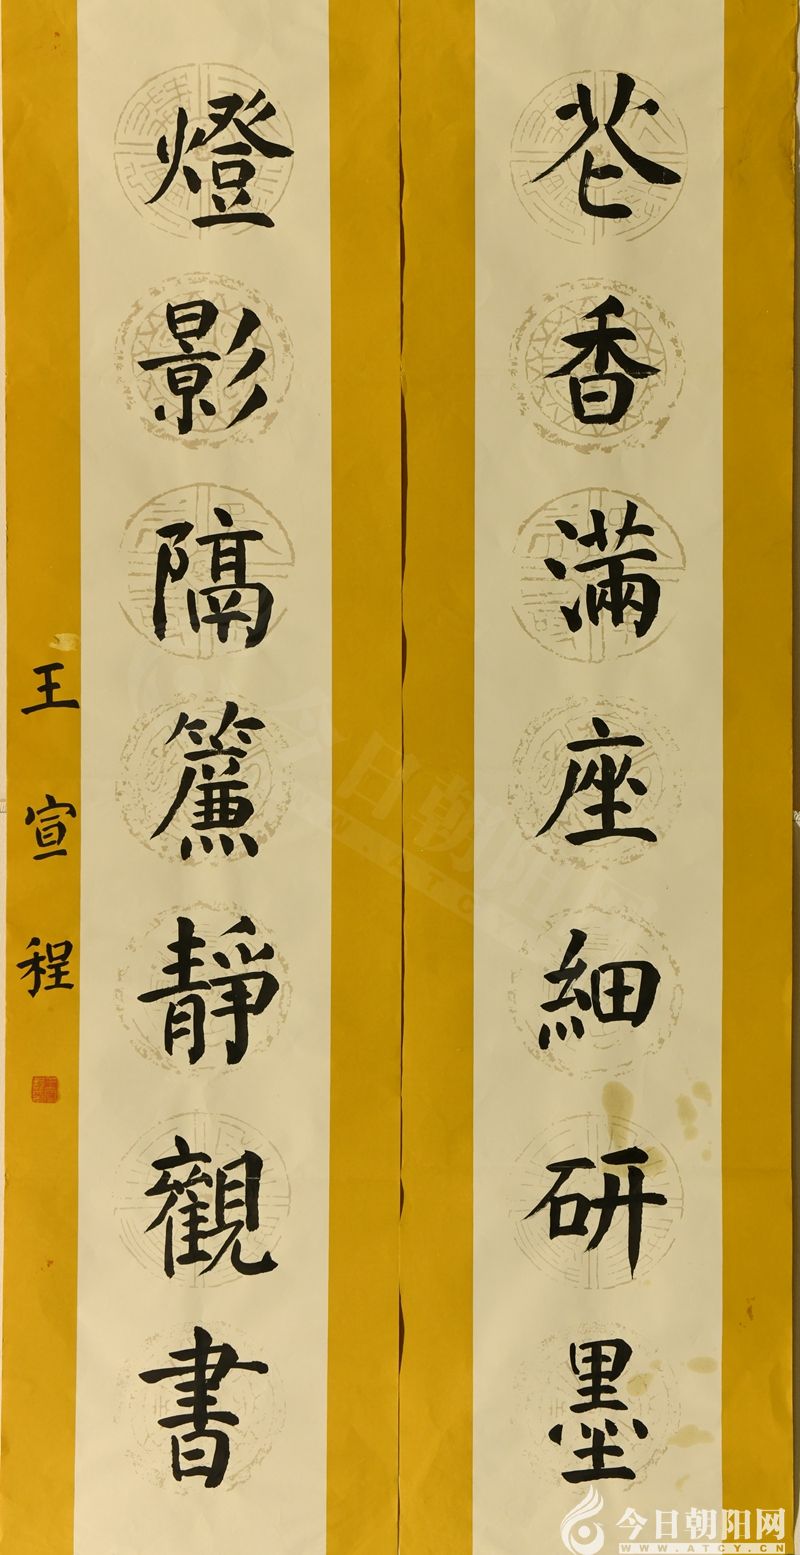 花香滿座細研墨
燈影隔簾靜觀書
王宣程
今日朝阳网
WWW.ATCY.CN